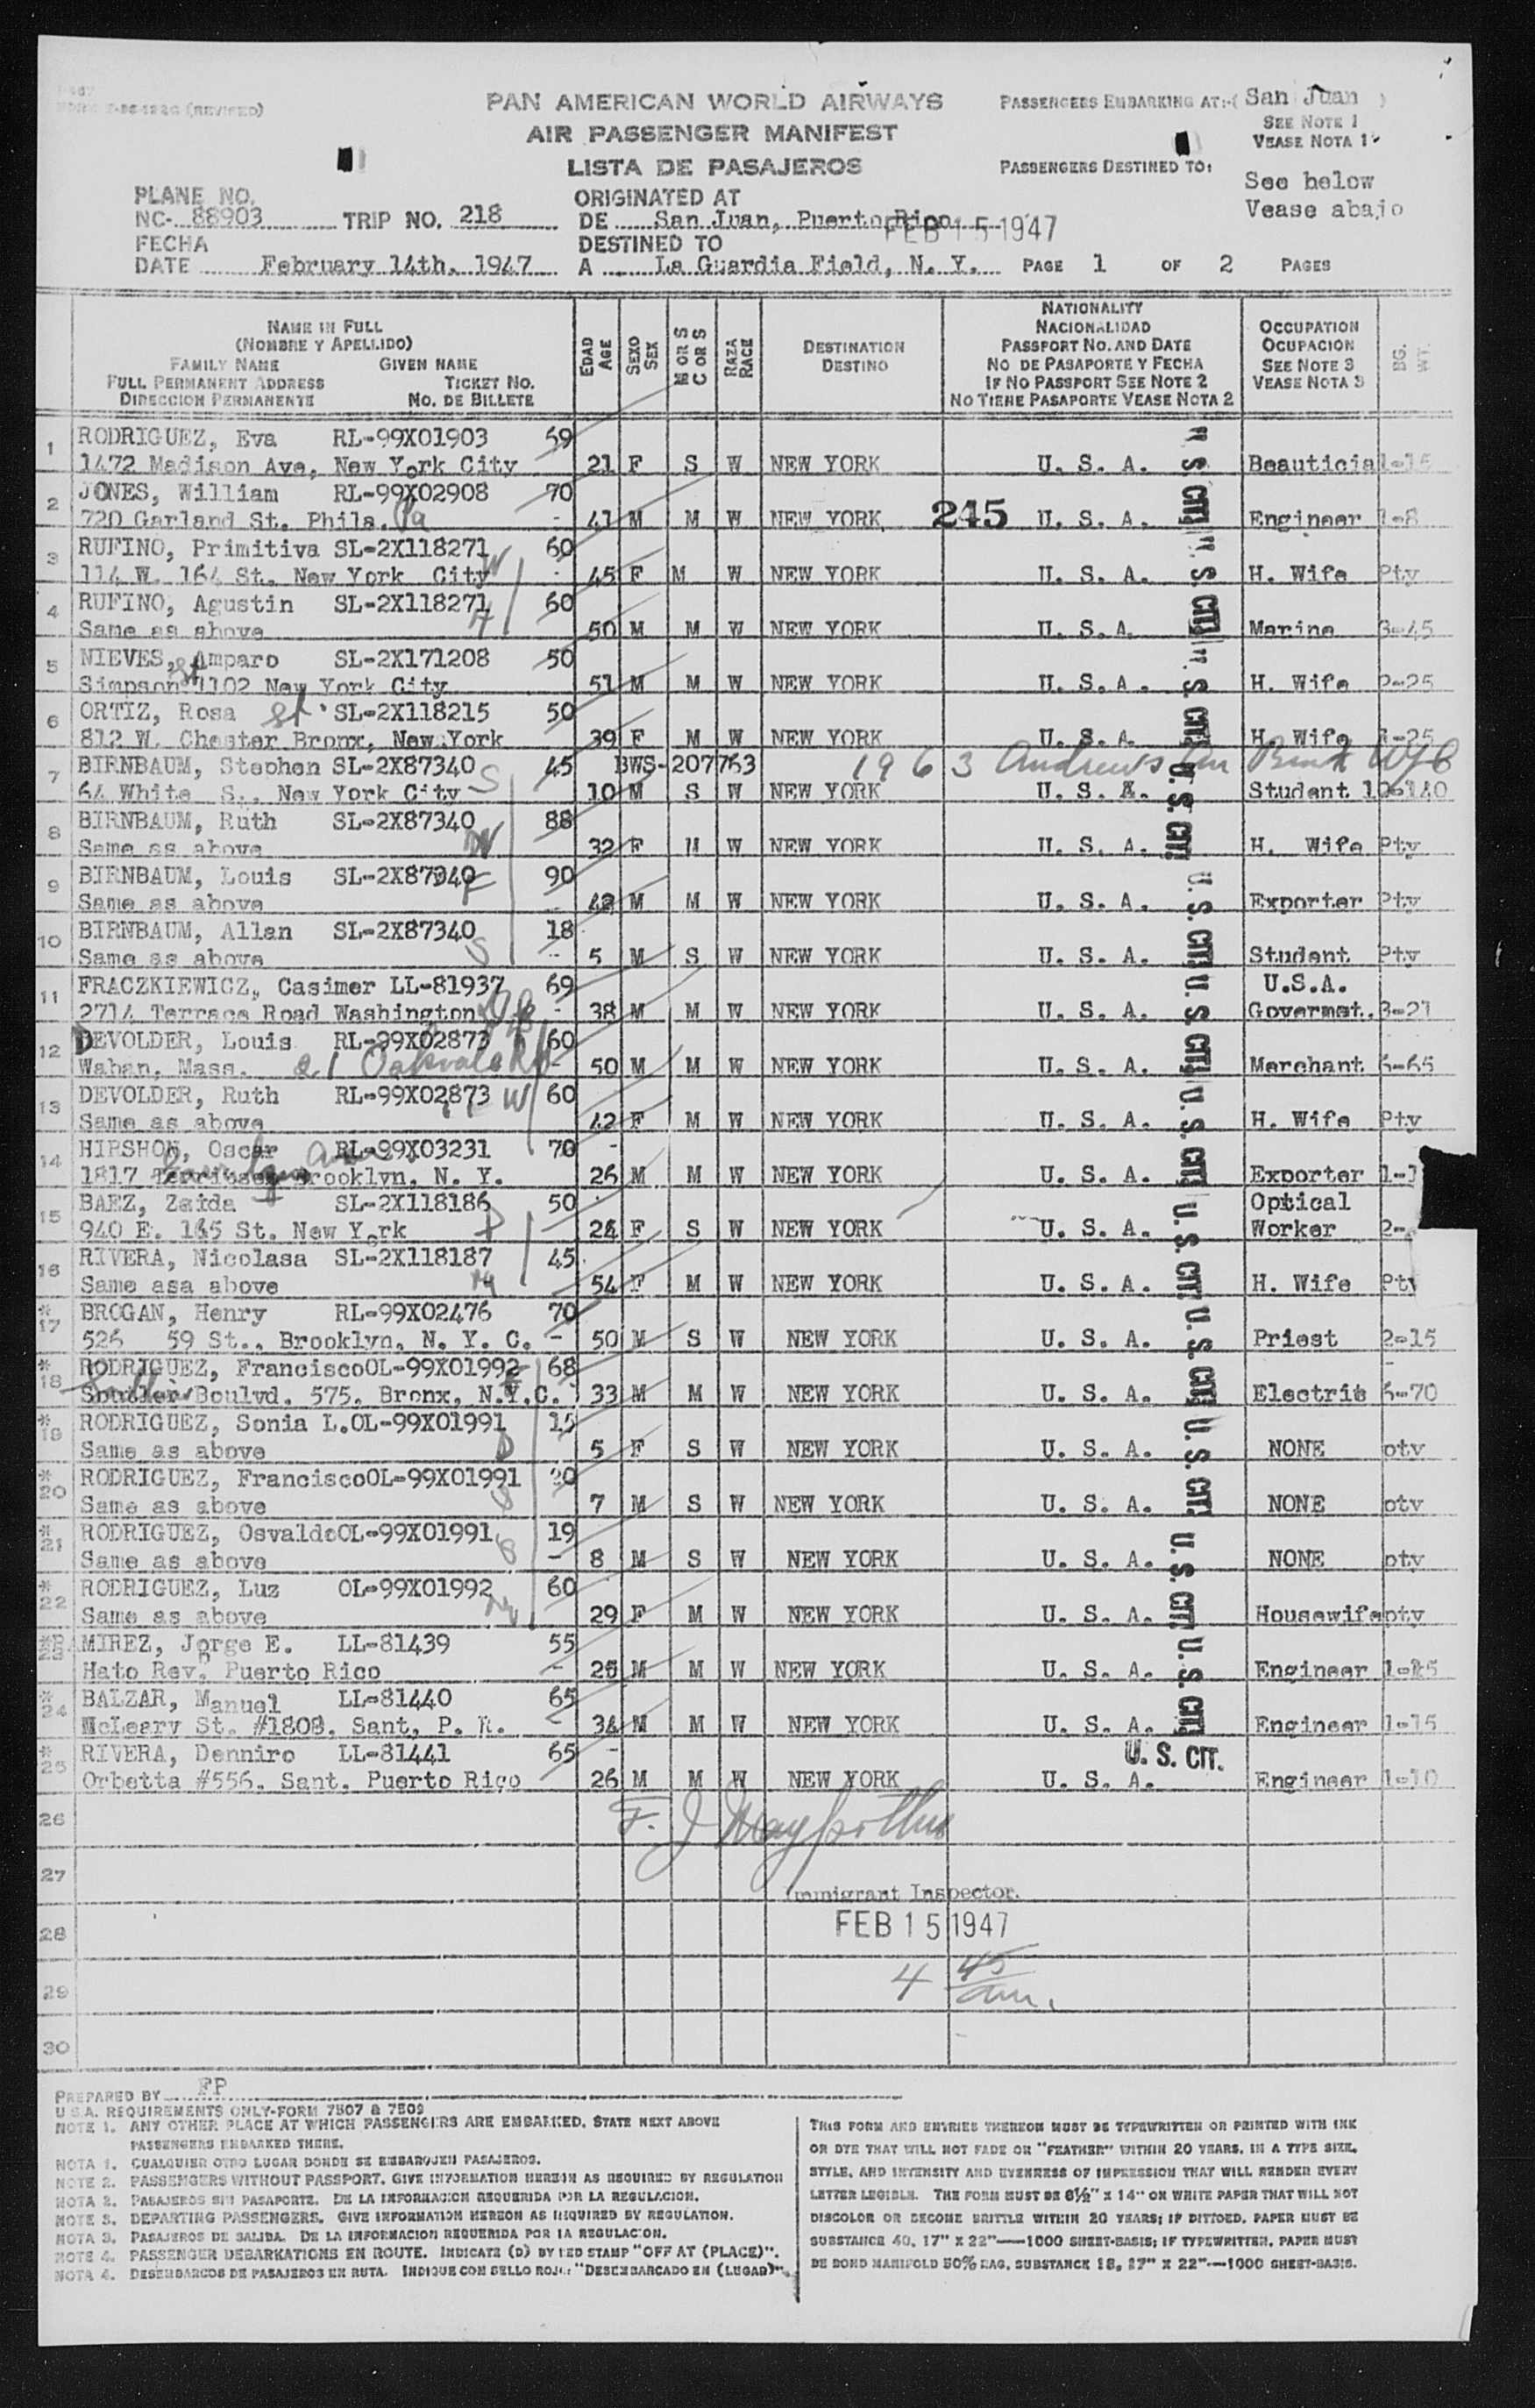 PAN AMERICAN WORLD AIRWAYS
AIR PASSENGER MANIFEST
LISTA DE PASAJEROS
PASSENGERS EMBARKING AT:-( San Juan )
SEE NOTE 1
VEASE NOTA 1
PASSENGERS DESTINED TO:
See below
Vease abajo
PLANE NO.
NC- 88903 TRIP NO. 218
ORIGINATED AT
DE San Juan, Puerto Rico
FEB 15 1947
FECHA
DATE February 14th. 1947
DESTINED TO
A La Guardia Field, N. Y. PAGE 1 OF 2 PAGES
NAME IN FULL
(NOMBRE Y APELLIDO)
FAMILY NAME GIVEN NAME
FULL PERMANENT ADDRESS TICKET NO.
DIRECCION PERMANENTE NO. DE BILLETE
EDAD AGE
SEXO SEX
M OR S C OR S
RAZA RACE
DESTINATION
DESTINO
NATIONALITY
NACIONALIDAD
PASSPORT NO. AND DATE
NO DE PASAPORTE Y FECHA
IF NO PASSPORT SEE NOTE 2
NO TIENE PASAPORTE VEASE NOTA 2
OCCUPATION
OCUPACION
SEE NOTE 3
VEASE NOTA 3
BG. WT.
1 RODRIGUEZ, Eva RL-99X01903 59
1472 Madison Ave, New York City 21 F S W NEW YORK U. S. A. Beauticia 1-15
2 JONES, William RL-99X02908 70
720 Garland St. Phila. Pa 41 M M W NEW YORK 245 U. S. A. Engineer 1-8
3 RUFINO, Primitiva SL-2X118271 W 60
114 W. 164 St. New York City 45 F M W NEW YORK U. S. A. H. Wife Pty
4 RUFINO, Agustin SL-2X118271 H 60
Same as above 50 M M W NEW YORK U. S. A. Marine 3-45
5 NIEVES, Amparo SL-2X171208 50
Simpson St 1102 New York City 51 M M W NEW YORK U. S. A. H. Wife 2-25
6 ORTIZ, Rosa St. SL-2X118215 50
812 W. Chester Bronx, New York 39 F M W NEW YORK U. S. A. H. Wife 1-25
7 BIRNBAUM, Stephen SL-2X87340 S 45 BWS-207763 1963 Andrews Bronx NYC
64 White S., New York City 10 M S W NEW YORK U. S. A. Student 10-140
8 BIRNBAUM, Ruth SL-2X87340 88
Same as above 32 F M W NEW YORK U. S. A. H. Wife Pty
9 BIRNBAUM, Louis SL-2X87340 F 90
Same as above 42 M M W NEW YORK U. S. A. Exporter Pty
10 BIRNBAUM, Allan SL-2X87340 S 18
Same as above 5 M S W NEW YORK U. S. A. Student Pty
11 FRACZKIEWICZ, Casimer LL-81937 69 U.S.A.
2714 Terrace Road Washington 38 M M W NEW YORK U. S. A. Govermet. 3-21
12 DEVOLDER, Louis RL-99X02873 60
Waban, Mass. 21 Oakvale Rd 50 M M W NEW YORK U. S. A. Merchant 6-65
13 DEVOLDER, Ruth RL-99X02873 W 60
Same as above 42 F M W NEW YORK U. S. A. H. Wife Pty
14 HIRSHON, Oscar RL-99X03231 70
1817 Brooklyn, N. Y. 26 M M W NEW YORK U. S. A. Exporter 1-1
15 BAEZ, Zaida SL-2X118186 50 Optical
940 E. 165 St. New York 24 F S W NEW YORK U. S. A. Worker 2-
16 RIVERA, Nicolasa SL-2X118187 M 45
Same asa above 54 F M W NEW YORK U. S. A. H. Wife Pty
*17 BROGAN, Henry RL-99X02476 70
526 59 St., Brooklyn, N. Y. C. 50 M S W NEW YORK U. S. A. Priest 2-15
*18 RODRIGUEZ, Francisco OL-99X01992 68
Boulvd. 575, Bronx, N.Y.C. 33 M M W NEW YORK U. S. A. Electrit 6-70
*19 RODRIGUEZ, Sonia L. OL-99X01991 D 15
Same as above 5 F S W NEW YORK U. S. A. NONE pty
*20 RODRIGUEZ, Francisco OL-99X01991 S 20
Same as above 7 M S W NEW YORK U. S. A. NONE pty
*21 RODRIGUEZ, Osvaldo OL-99X01991 S 19
Same as above 8 M S W NEW YORK U. S. A. NONE pty
*22 RODRIGUEZ, Luz OL-99X01992 60
Same as above 29 F M W NEW YORK U. S. A. Housewife pty
*23 RAMIREZ, Jorge E. LL-81439 55
Hato Rey, Puerto Rico 25 M M W NEW YORK U. S. A. Engineer 1-15
*24 BALZAR, Manuel LL-81440 65
McLeary St. #1808, Sant, P. R. 34 M M W NEW YORK U. S. A. Engineer 1-15
*25 RIVERA, Denniro LL-81441 65 U. S. CIT.
Orbetta #556. Sant. Puerto Rico 26 M M W NEW YORK U. S. A. Engineer 1-10
26 F. J.
27 Immigrant Inspector.
28 FEB 15 1947
29 4 45 am.
30
PREPARED BY FP
U.S.A. REQUIREMENTS ONLY-FORM 7507 & 7509
NOTE 1. ANY OTHER PLACE AT WHICH PASSENGERS ARE EMBARKED, STATE NEXT ABOVE
PASSENGERS EMBARKED THERE.
NOTA 1. CUALQUIER OTRO LUGAR DONDE SE EMBARQUEN PASAJEROS.
NOTE 2. PASSENGERS WITHOUT PASSPORT, GIVE INFORMATION HEREIN AS REQUIRED BY REGULATION
NOTA 2. PASAJEROS SIN PASAPORTE. DE LA INFORMACION REQUERIDA POR LA REGULACION.
NOTE 3. DEPARTING PASSENGERS. GIVE INFORMATION HEREON AS REQUIRED BY REGULATION.
NOTA 3. PASAJEROS DE SALIDA. DE LA INFORMACION REQUERIDA POR LA REGULACION.
NOTE 4. PASSENGER DEBARKATIONS EN ROUTE. INDICATE (D) BY RED STAMP "OFF AT (PLACE)".
NOTA 4. DESEMBARCOS DE PASAJEROS EN RUTA. INDIQUE CON SELLO ROJO: "DESEMBARCADO EN (LUGAR)".
THIS FORM AND ENTRIES THEREON MUST BE TYPEWRITTEN OR PRINTED WITH INK
OR DYE THAT WILL NOT FADE OR "FEATHER" WITHIN 20 YEARS, IN A TYPE SIZE,
STYLE, AND INTENSITY AND EVENNESS OF IMPRESSION THAT WILL RENDER EVERY
LETTER LEGIBLE. THE FORM MUST BE 8½" X 14" ON WHITE PAPER THAT WILL NOT
DISCOLOR OR BECOME BRITTLE WITHIN 20 YEARS; IF DITTOED, PAPER MUST BE
SUBSTANCE 40, 17" X 22"—1000 SHEET-BASIS; IF TYPEWRITTEN, PAPER MUST
BE BOND MANIFOLD 50% RAG, SUBSTANCE 18, 17" X 22"—1000 SHEET-BASIS.